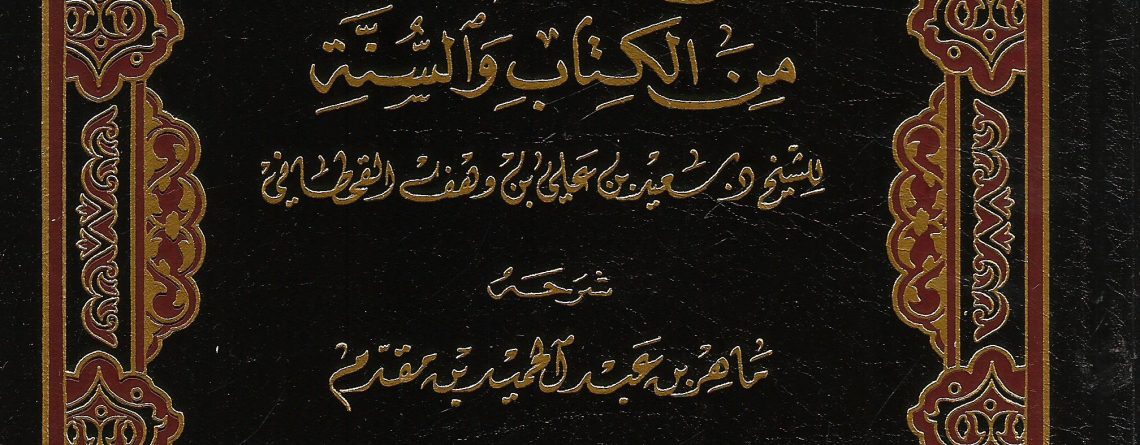 مِنَ الْكِتَابِ وَالسُّنَّةِ
للشيخ د. سعيد بن علي بن وهف القحطاني
شرحه
ماهر بن عبد الحميد بن مقدم